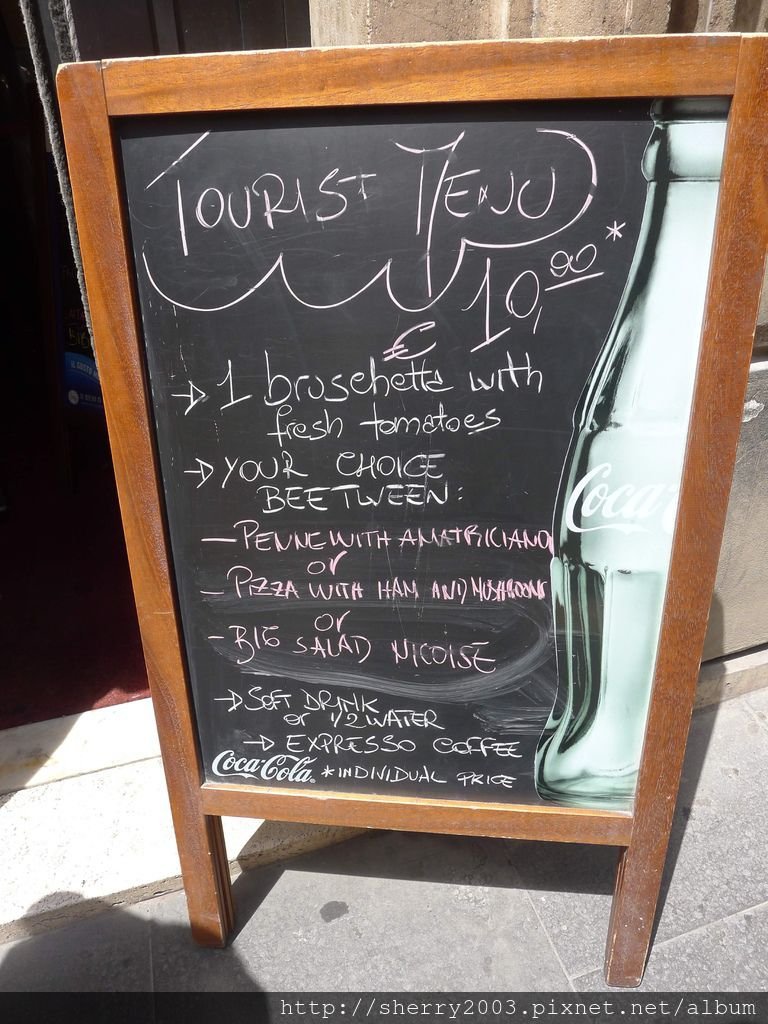 TOURIST MENU
10,90 *
€
→ 1 bruschetta with
fresh tomatoes
→ YOUR CHOICE
BEETWEEN:
— PENNE WITH AMATRICIANA
or
— PIZZA WITH HAM AND MUSHROOMS
or
- BIG SALAD NICOISE
→ SOFT DRINK
or 1/2 WATER
→ EXPRESSO COFFEE
Coca-Cola * INDIVIDUAL PRICE
Coca-
http://sherry2003.pixnet.net/album